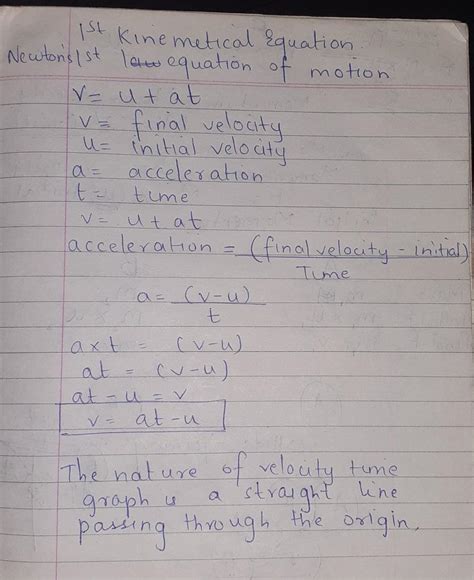 1st Kinemetical Equation.
Newton's 1st law equation of motion
v = u + at
v = final velocity
u = initial velocity
a = acceleration
t = time
v = u + at
acceleration = (final velocity - initial)
Time
a = (v-u)
t
a x t = (v-u)
at = (v-u)
at - u = v
v = at - u
The nature of velocity time
graph is a straight line
passing through the origin.